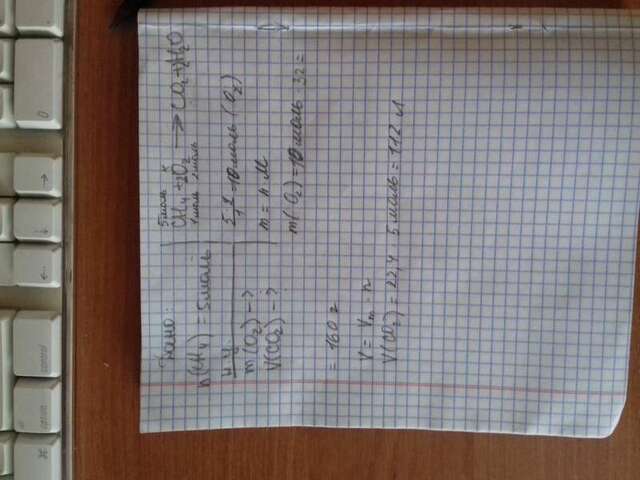 Дано:
n(CH4) = 5моль
н.у.
m(O2) -?
V(CO2) -?
5моль x
CH4 + 2O2 → CO2 + 2H2O
1моль 2моль
5·2/1 = 10моль (O2)
m = n M
m(O2) = 10моль 32 =
= 160 г
V = Vm n
V(CO2) = 22,4 5моль = 112 л